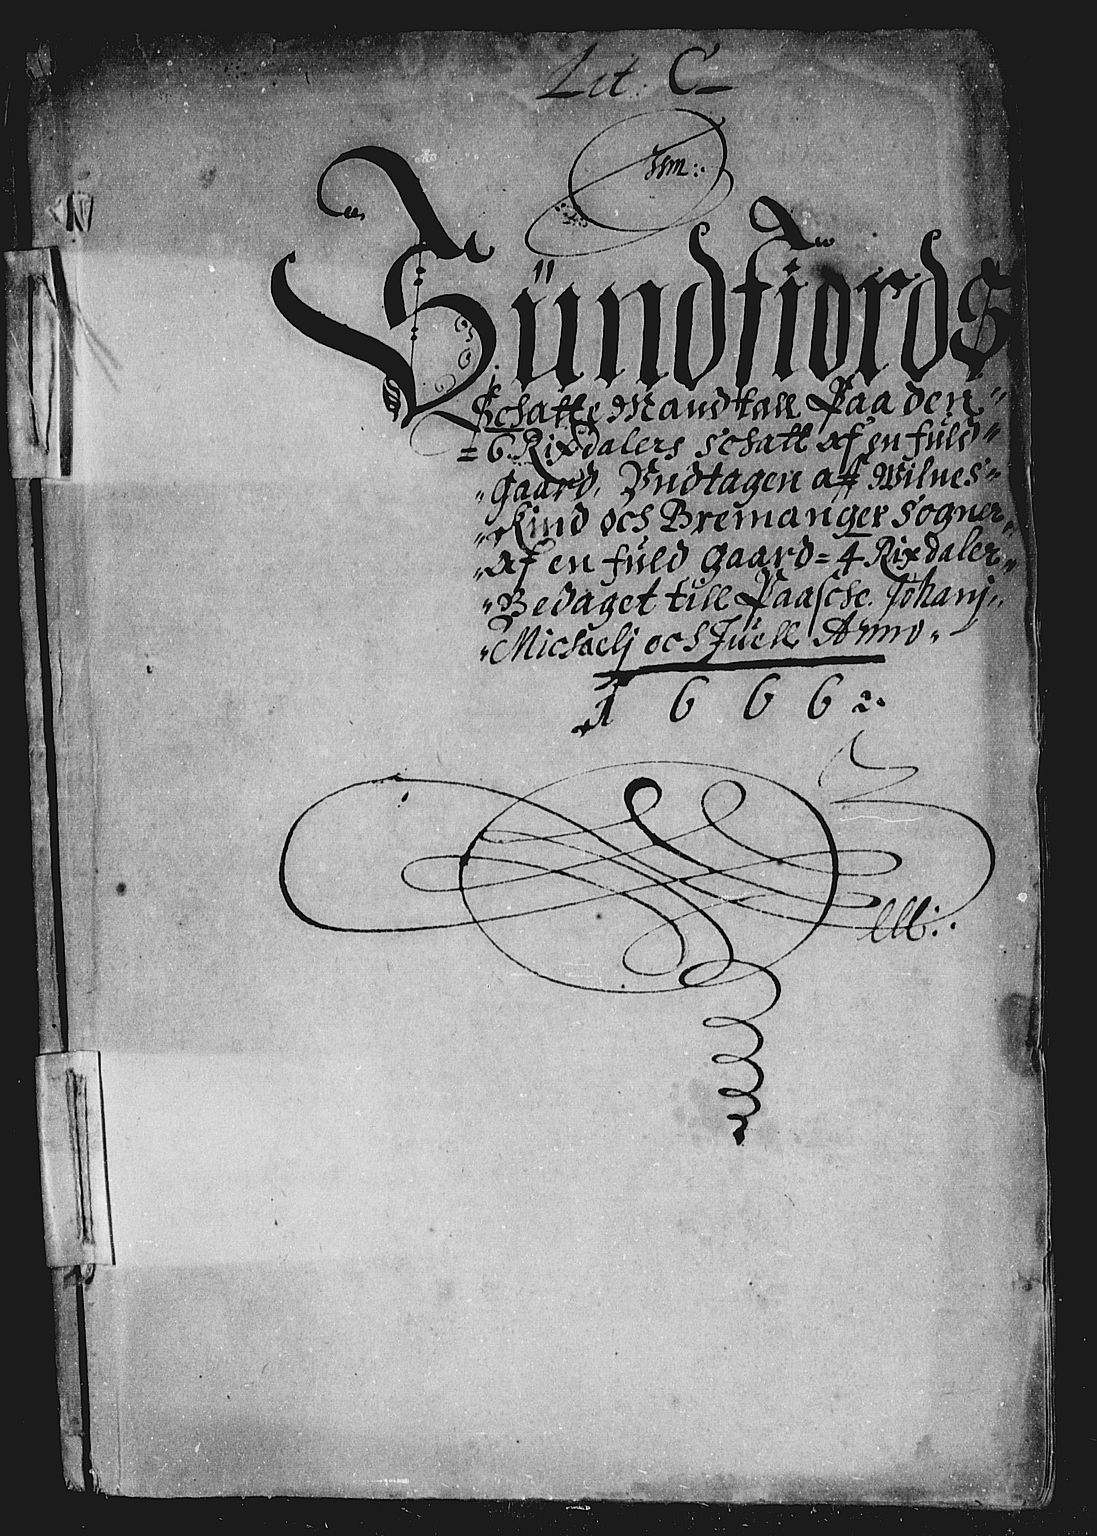 Lit: C
Sündfiords
Schatte Mandtall Paa den
6. Rixdalers schatt af en fuld
gaard, Vndtagen aff Wilnes
Kind och Bremanger sogner
af en fuld gaard = 4 Rixdaler
Bedaget till Paasche. Johanj
Michaelj och Juell Anno
1 6 6 6 2.